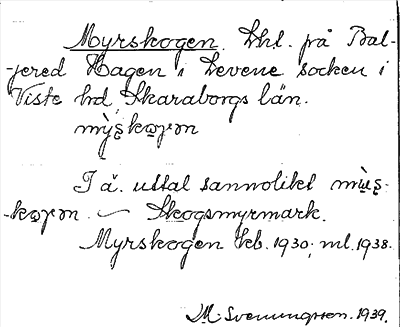 Myrskogen. Lhl. på Bal-
-jered Hagen i Levene socken i
Viste hd, Skaraborgs län.
I ä. uttal sannolikt
Skogsmyrmark.
Myrskogen Kb. 1930; ml. 1938.
M. Svenungsson. 1939.